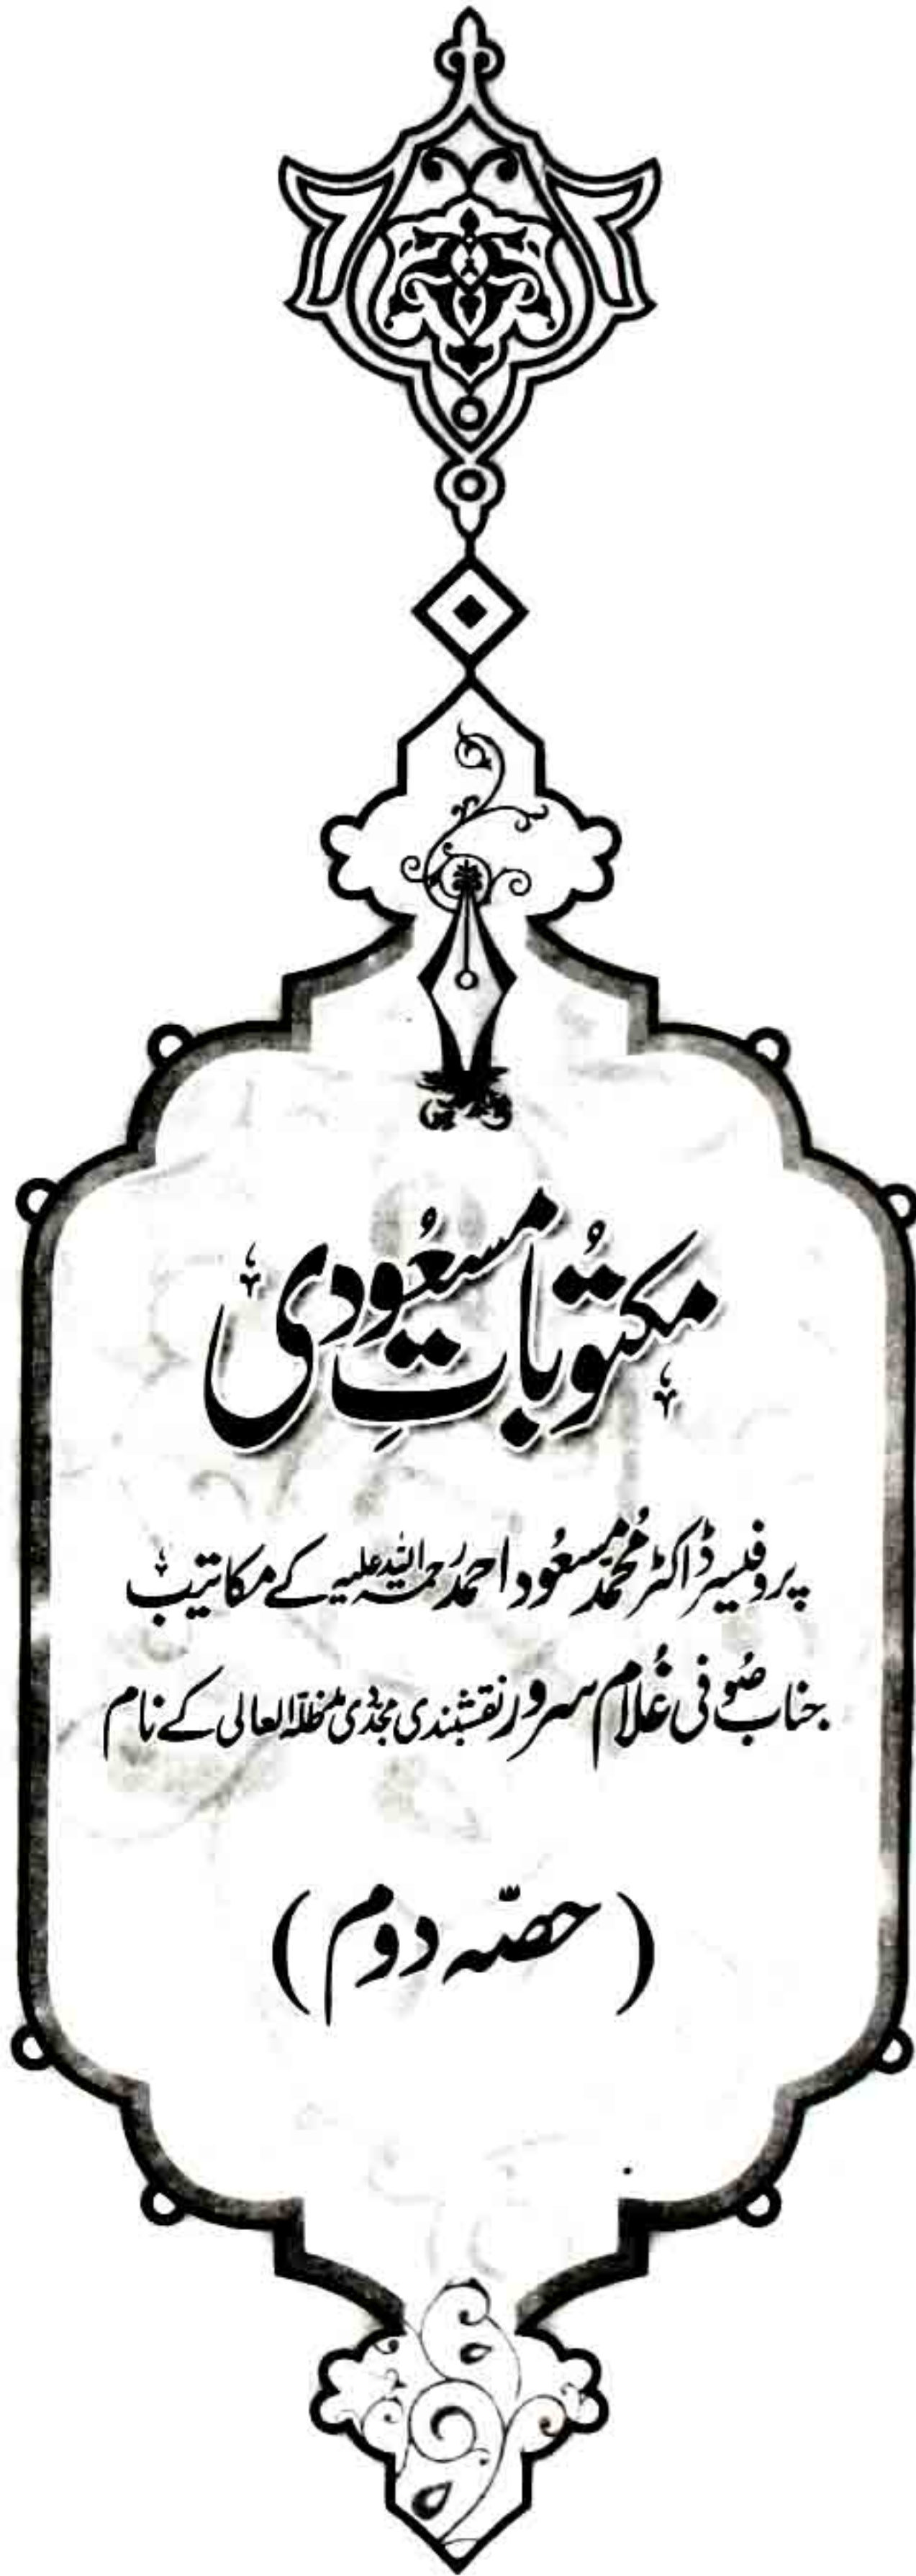 مکتُوباتِ مسعُودی
پروفیسر ڈاکٹر مُحمّد مسعُود احمد رحمۃ اللہ علیہ کے مکاتیب
جناب صُوفی غُلام سرور نقشبندی مجدّدی مدظلہ العالی کے نام
(حصّہ دوم)